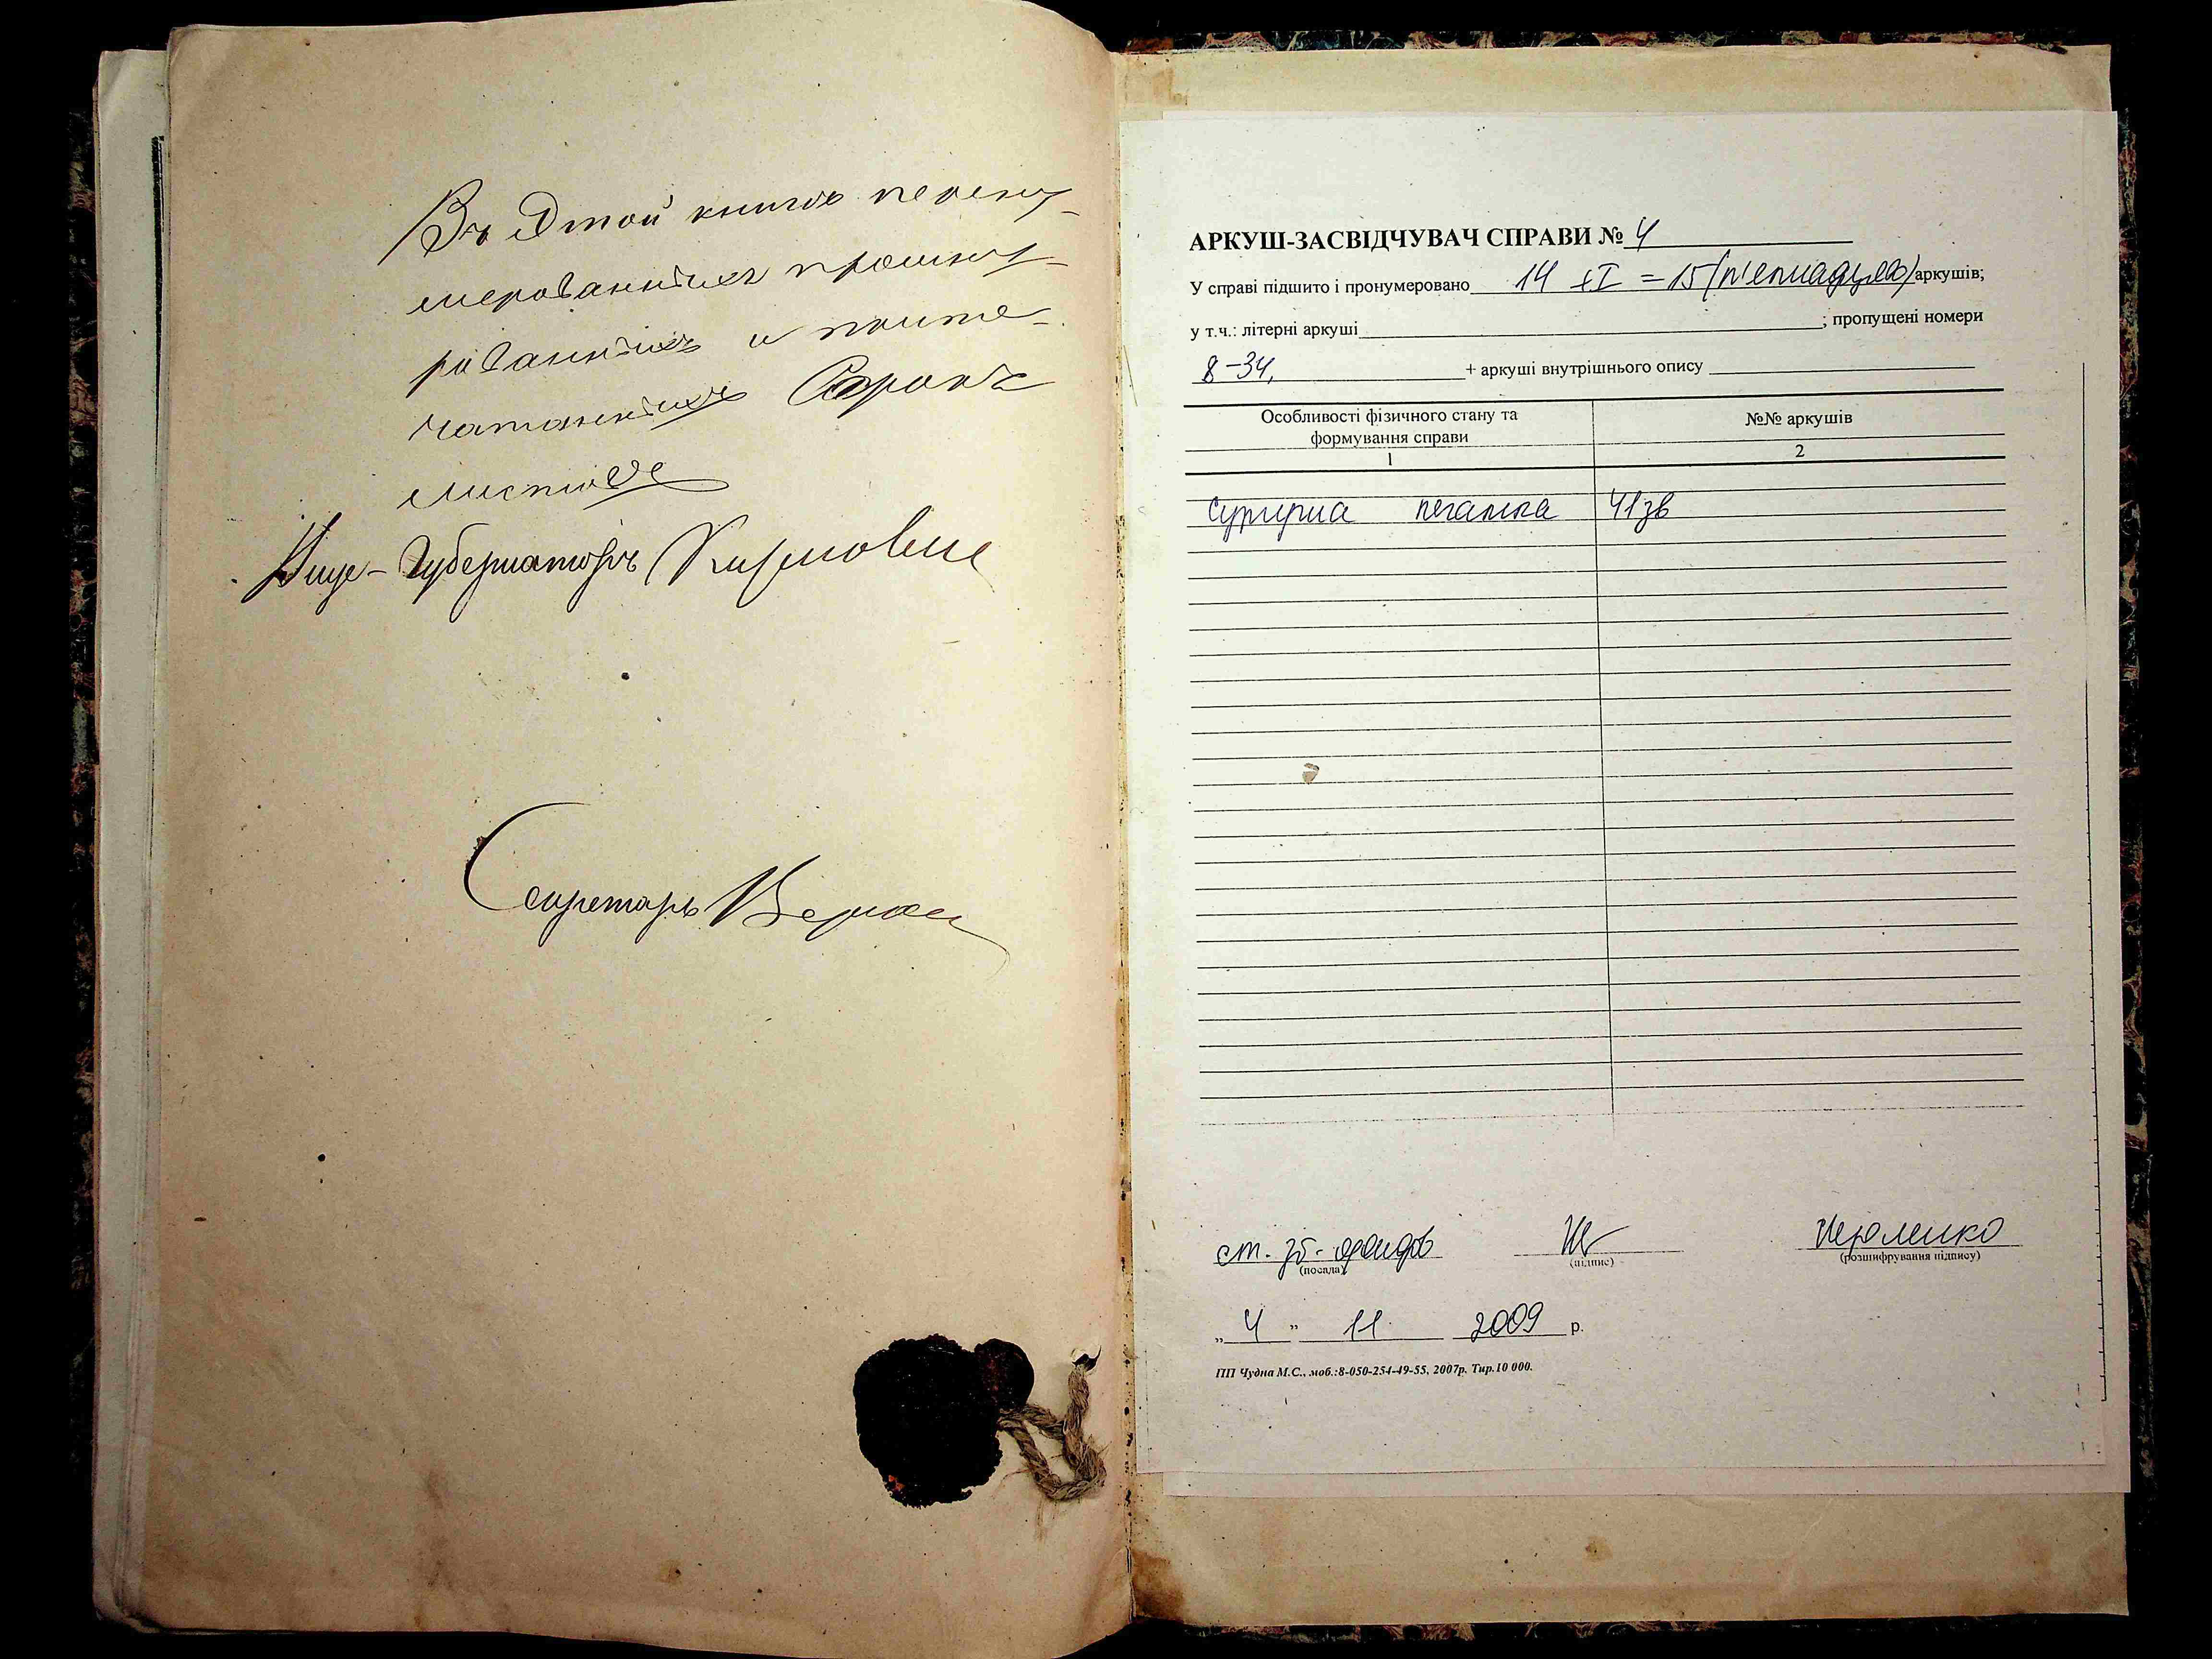 Въ Этой книгѣ перену-
мерованныхъ прошну-
рованныхъ и припе-
чатанныхъ Сорокъ
листовъ
Вице-Губернаторъ
Секретарь
АРКУШ-ЗАСВІДЧУВАЧ СПРАВИ № 4
У справі підшито і пронумеровано 14 +I = 15 (п'ятнадцять) аркушів;
у т.ч.: літерні аркуші ; пропущені номери
8-34, + аркуші внутрішнього опису
Особливості фізичного стану та формування справи
№№ аркушів
1
2
Сургучна печатка 41зв
ст. зб. фондів
(посада) (підпис) (розшифрування підпису)
„ 4 " 11. 2009 р.
ПП Чудна М.С., моб.:8-050-254-49-55, 2007р. Тир.10 000.